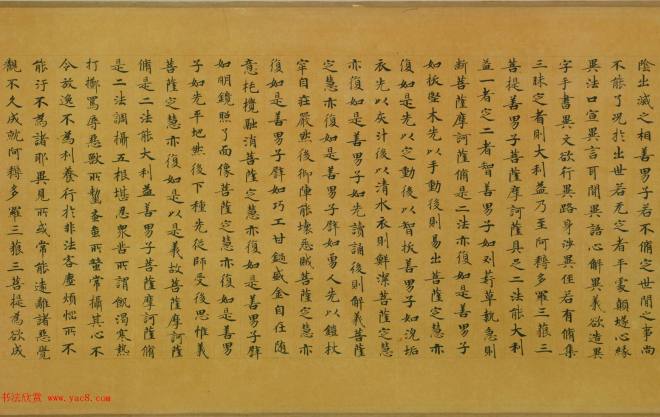 陰出滅之相善男子若不脩定世間之事尚
不能了況於出世若无定者平處顛墜心緣
異法口宣異言耳聞異語心解異義欲造異
字手書異文欲行異路身涉異徑若有脩集
三昧定者則大利益乃至阿耨多羅三藐三
菩提善男子菩薩摩訶薩具足二法能大利
益一者定二者智善男子如刈菅草執急則
斷菩薩摩訶薩脩是二法亦復如是善男子
如拔堅木先以手動後則易出菩薩定慧亦
復如是先以定動後以智拔善男子如浣垢
衣先以灰汁後以清水衣則鮮潔菩薩定慧
亦復如是善男子如先讀誦後則解義菩薩
定慧亦復如是善男子譬如勇人先以鎧杖
牢自莊嚴然後御陣能壞惡賊菩薩定慧亦
復如是善男子譬如巧工甘鍋盛金自在隨
意撓攪融消菩薩定慧亦復如是善男子譬
如明鏡照了面像菩薩定慧亦復如是善男
子如先平地然後下種先從師受後思惟義
菩薩定慧亦復如是以是義故菩薩摩訶薩
脩是二法能大利益善男子菩薩摩訶薩脩
是二法調攝五根堪忍衆苦所謂飢渴寒熱
打擲罵辱惡獸所齧蚉䖟所螫常攝其心不
令放逸不為利養行於非法客塵煩惱所不
能汙不為諸耶異見所或常能遠離諸惡覺
觀不久成就阿耨多羅三藐三菩提為欲成
书法欣赏 www.yac8.com